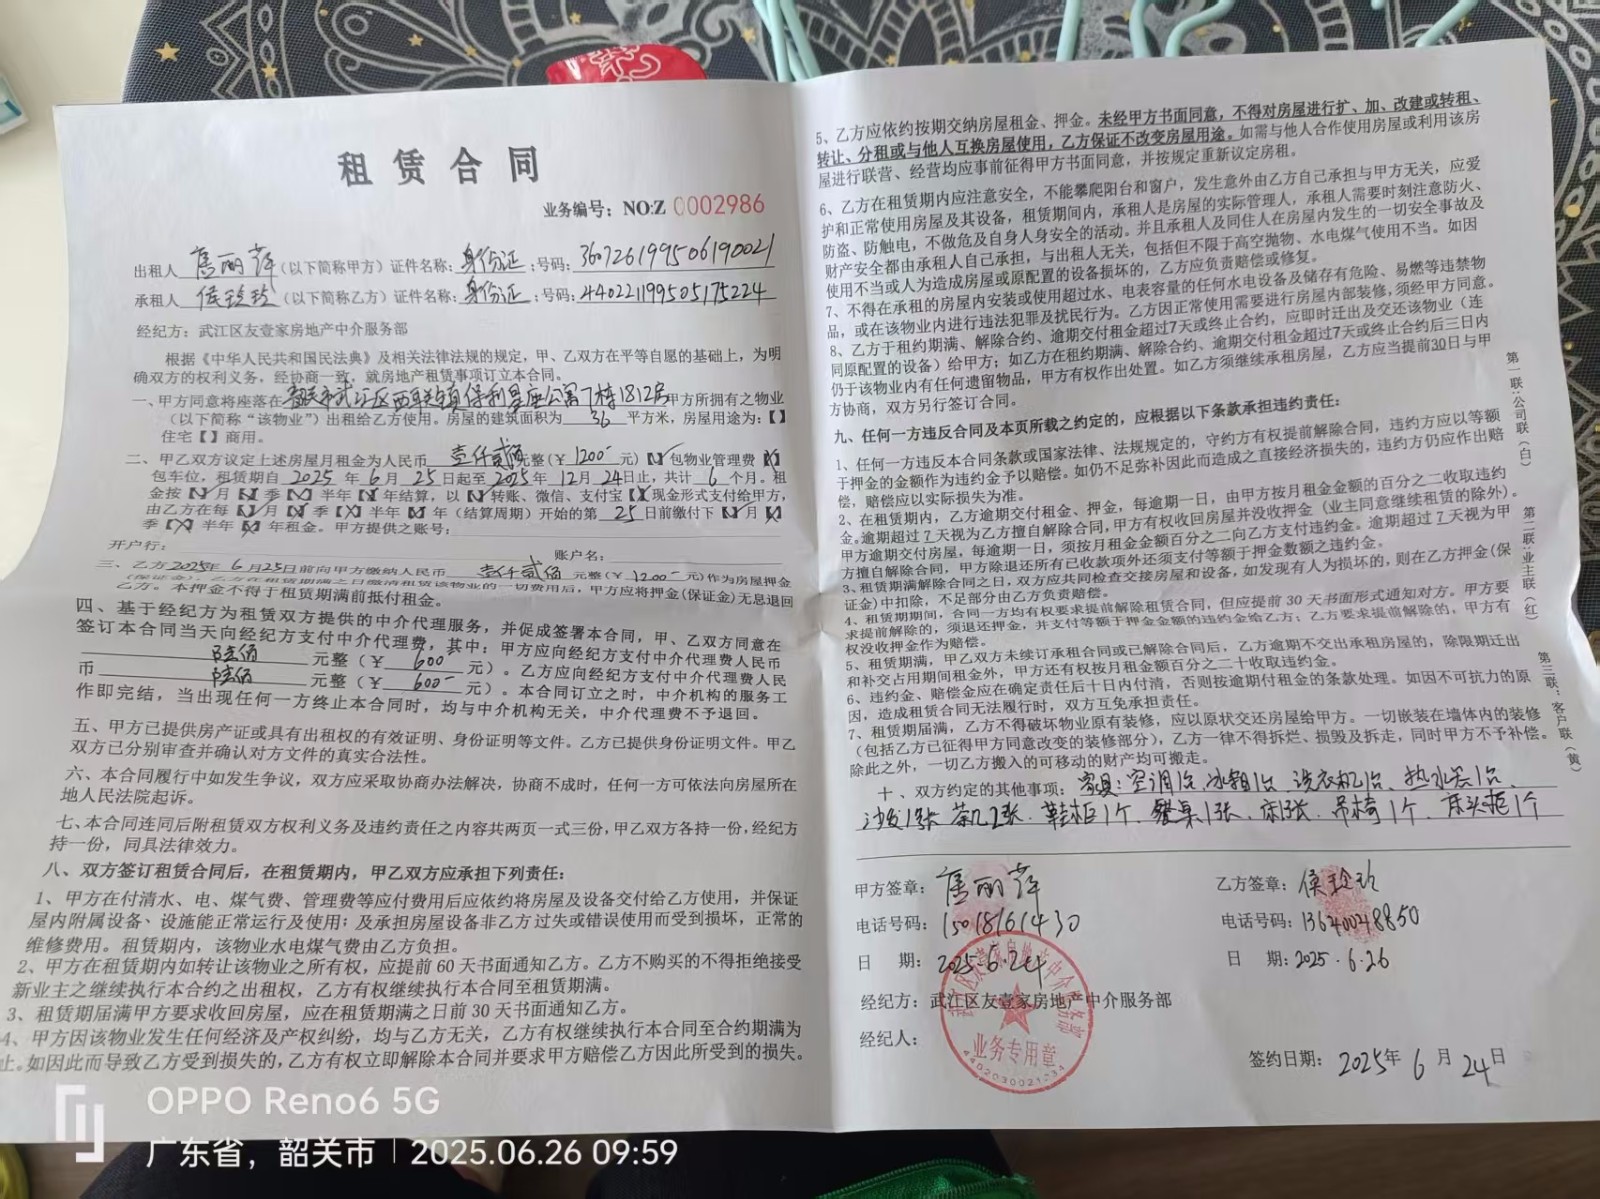 租赁合同
业务编号：NO:Z 0002986
出租人 丽萍（以下简称甲方）证件名称：身份证：号码：360726199506190021
承租人 侯玲玲（以下简称乙方）证件名称：身份证：号码：440221199505175224
经纪方：武江区友壹家房地产中介服务部
根据《中华人民共和国民法典》及相关法律法规的规定，甲、乙双方在平等自愿的基础上，为明
确双方的权利义务，经协商一致，就房地产租赁事项订立本合同。
一、甲方同意将座落在韶关市武江区西联镇保利星座公寓7栋1812房甲方所拥有之物业
（以下简称“该物业”）出租给乙方使用。房屋的建筑面积为 36 平方米，房屋用途为：【】
住宅【】商用。
二、甲乙双方议定上述房屋月租金为人民币 壹仟贰佰元整（¥ 1200- 元）【】包物业管理费【】
包车位，租赁期自 2025 年 6 月 25 日起至 2025 年 12 月 24 日止，共计 6 个月。租
金按【】月【】季【】半年【】年结算，以【】转账、微信、支付宝【】现金形式支付给甲方，
由乙方在每【】月【】季【】半年【】年（结算周期）开始的第 25 日前缴付下【】月【】
季【】半年【】年租金。甲方提供之账号：
开户行： 账户名：
三、乙方2025年 6 月25日前向甲方缴纳人民币 壹仟贰佰 元整（¥ 1200- 元）作为房屋押金
（保证金），乙方在租赁期满之日缴清租赁该物业的一切费用后，甲方应将押金(保证金)无息退回
乙方。本押金不得于租赁期满前抵付租金。
四、基于经纪方为租赁双方提供的中介代理服务，并促成签署本合同，甲、乙双方同意在
签订本合同当天向经纪方支付中介代理费，其中：甲方应向经纪方支付中介代理费人民币
陆佰 元整（¥ 600 元）。乙方应向经纪方支付中介代理费人民
币 陆佰 元整（¥ 600- 元）。本合同订立之时，中介机构的服务工
作即完结，当出现任何一方终止本合同时，均与中介机构无关，中介代理费不予退回。
五、甲方已提供房产证或具有出租权的有效证明、身份证明等文件。乙方已提供身份证明文件。甲乙
双方已分别审查并确认对方文件的真实合法性。
六、本合同履行中如发生争议，双方应采取协商办法解决，协商不成时，任何一方可依法向房屋所在
地人民法院起诉。
七、本合同连同后附租赁双方权利义务及违约责任之内容共两页一式三份，甲乙双方各持一份，经纪方
持一份，同具法律效力。
八、双方签订租赁合同后，在租赁期内，甲乙双方应承担下列责任：
1、甲方在付清水、电、煤气费、管理费等应付费用后应依约将房屋及设备交付给乙方使用，并保证
屋内附属设备、设施能正常运行及使用；及承担房屋设备非乙方过失或错误使用而受到损坏，正常的
维修费用。租赁期内，该物业水电煤气费由乙方负担。
2、甲方在租赁期内如转让该物业之所有权，应提前 60 天书面通知乙方。乙方不购买的不得拒绝接受
新业主之继续执行本合约之出租权，乙方有权继续执行本合同至租赁期满。
3、租赁期届满甲方要求收回房屋，应在租赁期满之日前 30 天书面通知乙方。
4、甲方因该物业发生任何经济及产权纠纷，均与乙方无关，乙方有权继续执行本合同至合约期满为
止。如因此而导致乙方受到损失的，乙方有权立即解除本合同并要求甲方赔偿乙方因此所受到的损失。
5、乙方应依约按期交纳房屋租金、押金。未经甲方书面同意，不得对房屋进行扩、加、改建或转租、
转让、分租或与他人互换房屋使用，乙方保证不改变房屋用途。如需与他人合作使用房屋或利用该房
屋进行联营、经营均应事前征得甲方书面同意，并按规定重新议定房租。
6、乙方在租赁期内应注意安全，不能攀爬阳台和窗户，发生意外由乙方自己承担与甲方无关，应爱
护和正常使用房屋及其设备，租赁期间内，承租人是房屋的实际管理人，承租人需要时刻注意防火、
防盗、防触电，不做危及自身人身安全的活动。并且承租人及同住人在房屋内发生的一切安全事故及
财产安全都由承租人自己承担，与出租人无关，包括但不限于高空抛物、水电煤气使用不当。如因
使用不当或人为造成房屋或原配置的设备损坏的，乙方应负责赔偿或修复。
7、不得在承租的房屋内安装或使用超过水、电表容量的任何水电设备及储存有危险、易燃等违禁物
品，或在该物业内进行违法犯罪及扰民行为。乙方因正常使用需要进行房屋内部装修，须经甲方同意。
8、乙方于租约期满、解除合约、逾期交付租金超过7天或终止合约，应即时迁出及交还该物业（连
同原配置的设备）给甲方；如乙方在租约期满、解除合约、逾期交付租金超过7天或终止合约后三日内
仍于该物业内有任何遗留物品，甲方有权作出处置。如乙方须继续承租房屋，乙方应当提前30日与甲
方协商，双方另行签订合同。
九、任何一方违反合同及本页所载之约定的，应根据以下条款承担违约责任：
1、任何一方违反本合同条款或国家法律、法规规定的，守约方有权提前解除合同，违约方应以等额
于押金的金额作为违约金予以赔偿。如仍不足弥补因此而造成之直接经济损失的，违约方仍应作出赔
偿，赔偿应以实际损失为准。
2、在租赁期内，乙方逾期交付租金、押金，每逾期一日，由甲方按月租金金额的百分之二收取违约
金。逾期超过 7 天视为乙方擅自解除合同，甲方有权收回房屋并没收押金（业主同意继续租赁的除外）。
甲方逾期交付房屋，每逾期一日，须按月租金金额百分之二向乙方支付违约金。逾期超过 7 天视为甲
方擅自解除合同，甲方除退还所有已收款项外还须支付等额于押金数额之违约金。
3、租赁期满解除合同之日，双方应共同检查交接房屋和设备，如发现有人为损坏的，则在乙方押金(保
证金)中扣除，不足部分由乙方负责赔偿。
4、租赁期期间，合同一方均有权要求提前解除租赁合同，但应提前 30 天书面形式通知对方。甲方要
求提前解除的，须退还押金，并支付等额于押金金额的违约金给乙方；乙方要求提前解除的，甲方有
权没收押金作为赔偿。
5、租赁期满，甲甲乙双方未续订承租合同或已解除合同后，乙方逾期不交出承租房屋的，除限期迁出
和补交占用期间租金外，甲方还有权按月租金金额百分之二十收取违约金。
6、违约金、赔偿金应在确定责任后十日内付清，否则按逾期付租金的条款处理。如因不可抗力的原
因，造成租赁合同无法履行时，双方互免承担责任。
7、租赁期届满，乙方不得破坏物业原有装修，应以原状交还房屋给甲方。一切嵌装在墙体内的装修
（包括乙方已征得甲方同意改变的装修部分），乙方一律不得拆烂、损毁及拆走，同时甲方不予补偿。
除此之外，一切乙方搬入的可移动的财产均可搬走。
十、双方约定的其他事项：家具：空调1台、冰箱1台、洗衣机1台、热水器1台、
沙发1张 茶几2张、鞋柜1个、餐桌1张、床1张、吊椅1个、床头柜1个
第一联：公司联（白）
第二联：业主联（红）
第三联：客户联（黄）
甲方签章： 丽萍
乙方签章：侯玲玲
电话号码：15018161430
电话号码：13640048850
日 期：2025.6.24
日 期：2025.6.26
经纪方：武江区友壹家房地产中介服务部
经纪人：
武江区友壹家房地产中介服务部
业务专用章
4402030021234
签约日期：2025年 6 月 24日
OPPO Reno6 5G
广东省，韶关市 | 2025.06.26 09:59